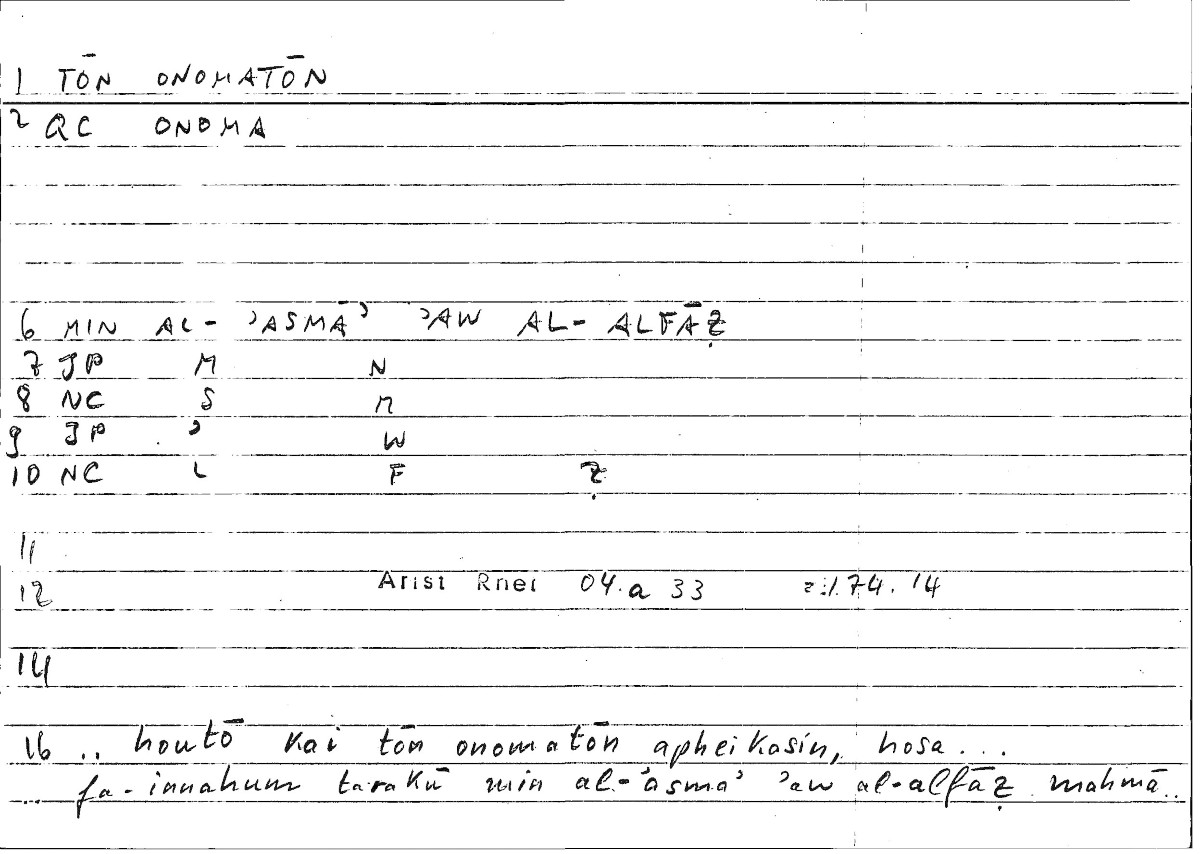 1 TŌN ONOMATŌN
2 QC ONOMA
6 MIN AL- ʾASMĀʾ ʾAW AL- ALFĀẒ
7 JP M N
8 NC S M
9 JP ʾ W
10 NC L F Ẓ
11
12 Arist Rher 04.a 33 174.14
14
16 .. houtō kai tōn onomatōn apheikasin, hosa...
fa-innahum tarakū min al-ʾasmaʾ ʾaw al-alfāẓ mahmā..